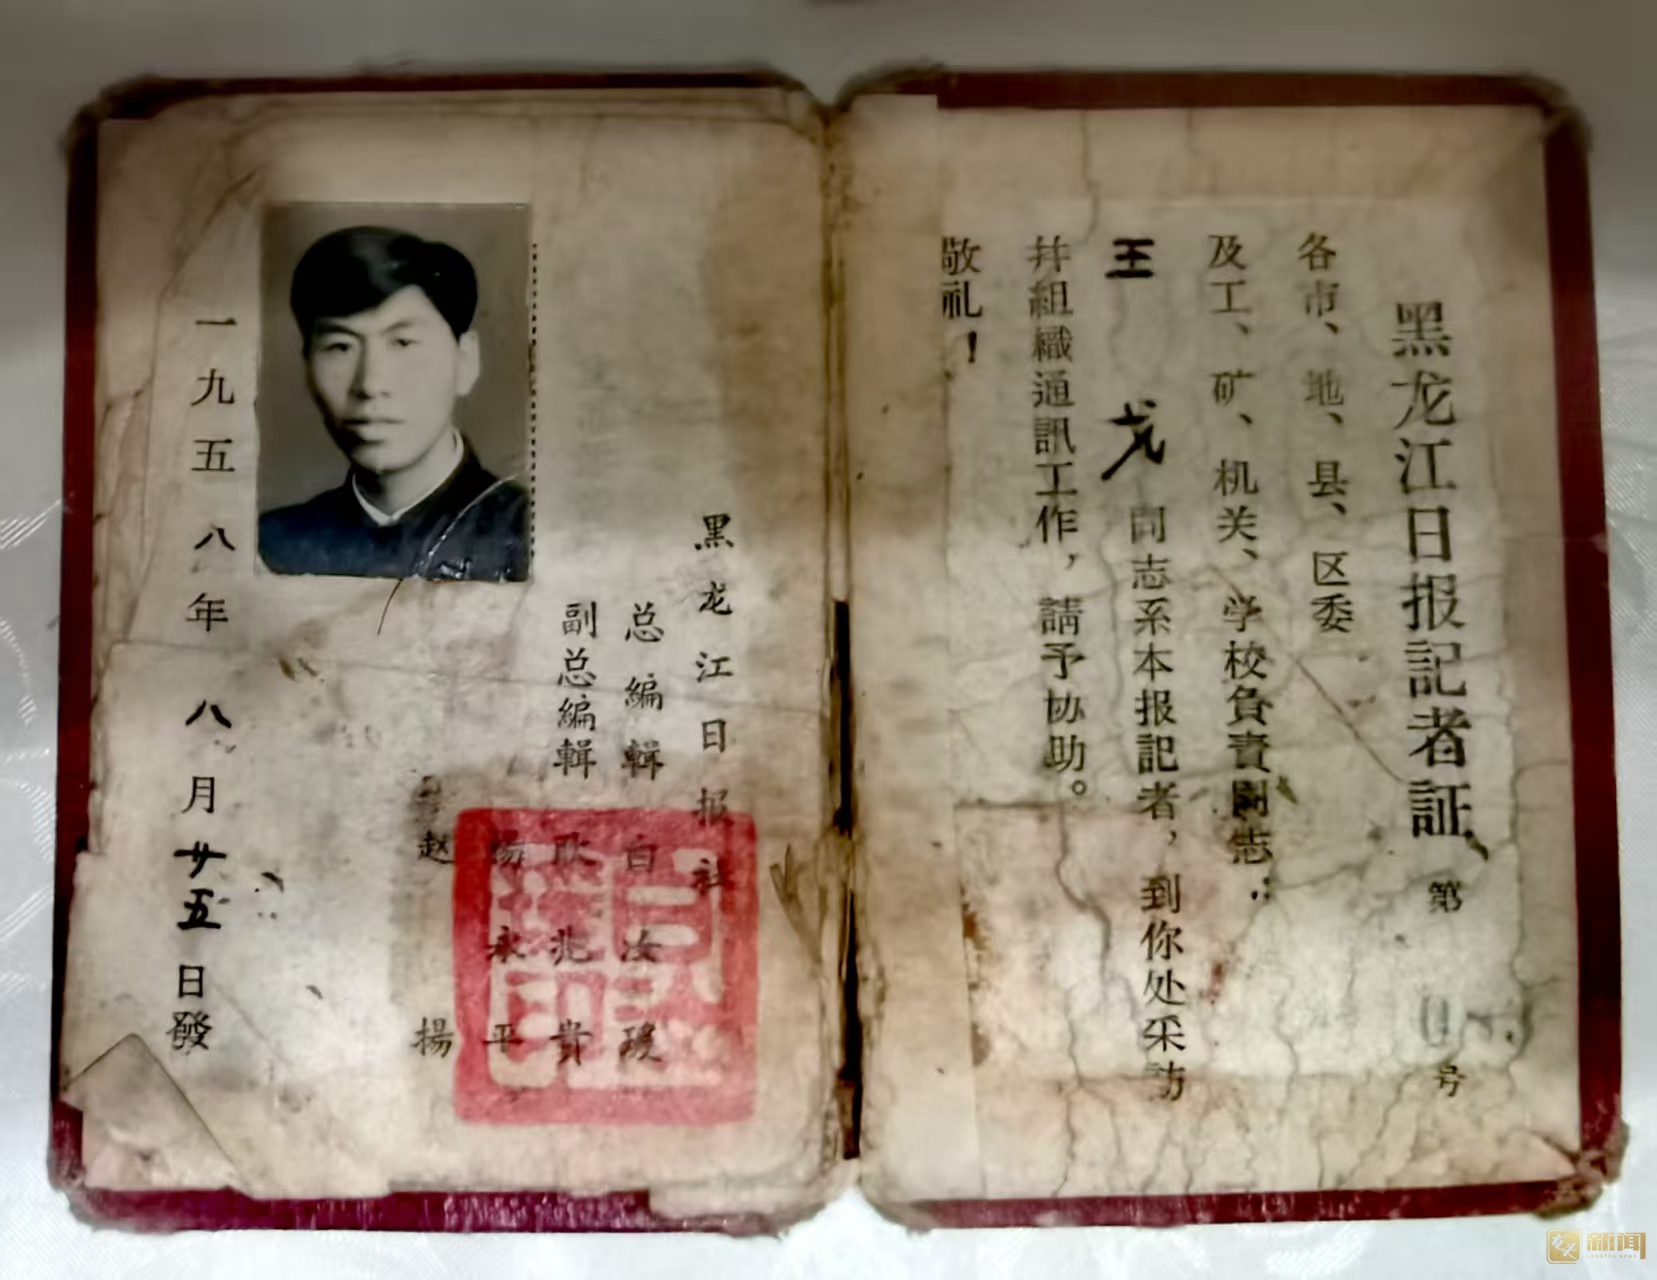 黑龙江日报記者証 第 号
各市、地、县、区委
及工、矿、机关、学校負責同志：
王戈同志系本报記者，到你处采訪
幷組織通訊工作，請予协助。
敬礼！
黑龙江日报社
总編輯 白汝瑗
副总編輯 耿兆貴
楊永平
赵揚
一九五八年八月廿五日發
新闻